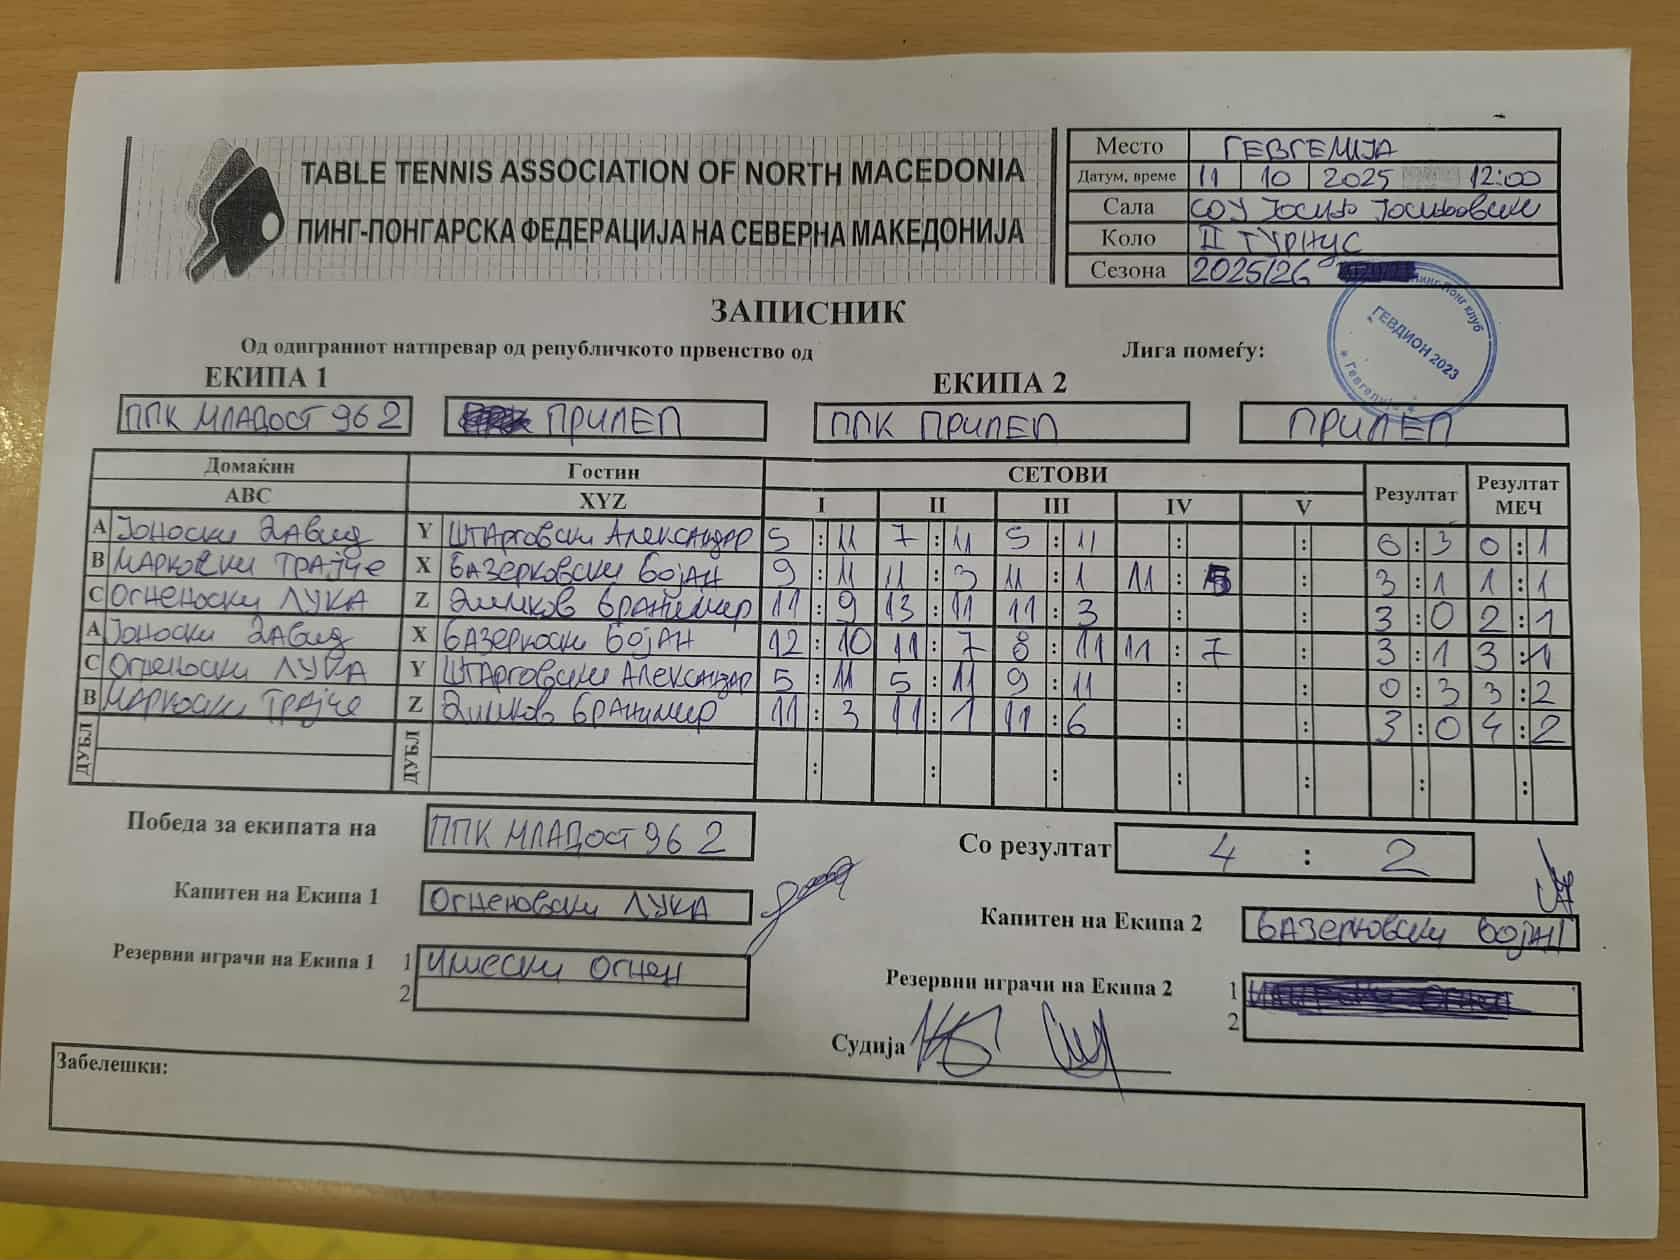 TABLE TENNIS ASSOCIATION OF NORTH MACEDONIA
ПИНГ-ПОНГАРСКА ФЕДЕРАЦИЈА НА СЕВЕРНА МАКЕДОНИЈА
Место ГЕВГЕЛИЈА
Датум, време 11 10 2025 12:00
Сала СОУ Јосиф Јосифовски
Коло II ТУРНУС
Сезона 2025/26
Пинг-Понг клуб
ГЕВДИОН 2023
Гевгелија
ЗАПИСНИК
Од одиграниот натпревар од републичкото првенство од Лига помеѓу:
ЕКИПА 1 ЕКИПА 2
ППК МЛАДОСТ 96 2 ПРИЛЕП ППК ПРИЛЕП ПРИЛЕП
Домаќин Гостин СЕТОВИ Резултат Резултат МЕЧ
ABC XYZ I II III IV V
A Јоноски Давид Y Штарговски Александар 5 : 11 7 : 11 5 : 11 : : 0 : 3 0 : 1
B Марковски Трајче X Базерковски Бојан 9 : 11 11 : 3 11 : 1 11 : 5 : 3 : 1 1 : 1
C Огненоски ЛУКА Z Димков Бранимир 11 : 9 13 : 11 11 : 3 : : 3 : 0 2 : 1
A Јоноски Давид X Базеркоски Бојан 12 : 10 11 : 7 8 : 11 11 : 7 : 3 : 1 3 : 1
C Огненоски ЛУКА Y Штарговски Александар 5 : 11 5 : 11 9 : 11 : : 0 : 3 3 : 2
B Маркоски Трајче Z Димков Бранимир 11 : 3 11 : 1 11 : 6 : : 3 : 0 4 : 2
ДУБЛ ДУБЛ : : : : : : :
Победа за екипата на ППК МЛАДОСТ 96 2 Со резултат 4 : 2
Капитен на Екипа 1 Огненовски ЛУКА Капитен на Екипа 2 Базерковски Бојан
Резервни играчи на Екипа 1 1 Илиески Огнен Резервни играчи на Екипа 2 1
2 2
Судија
Забелешки: